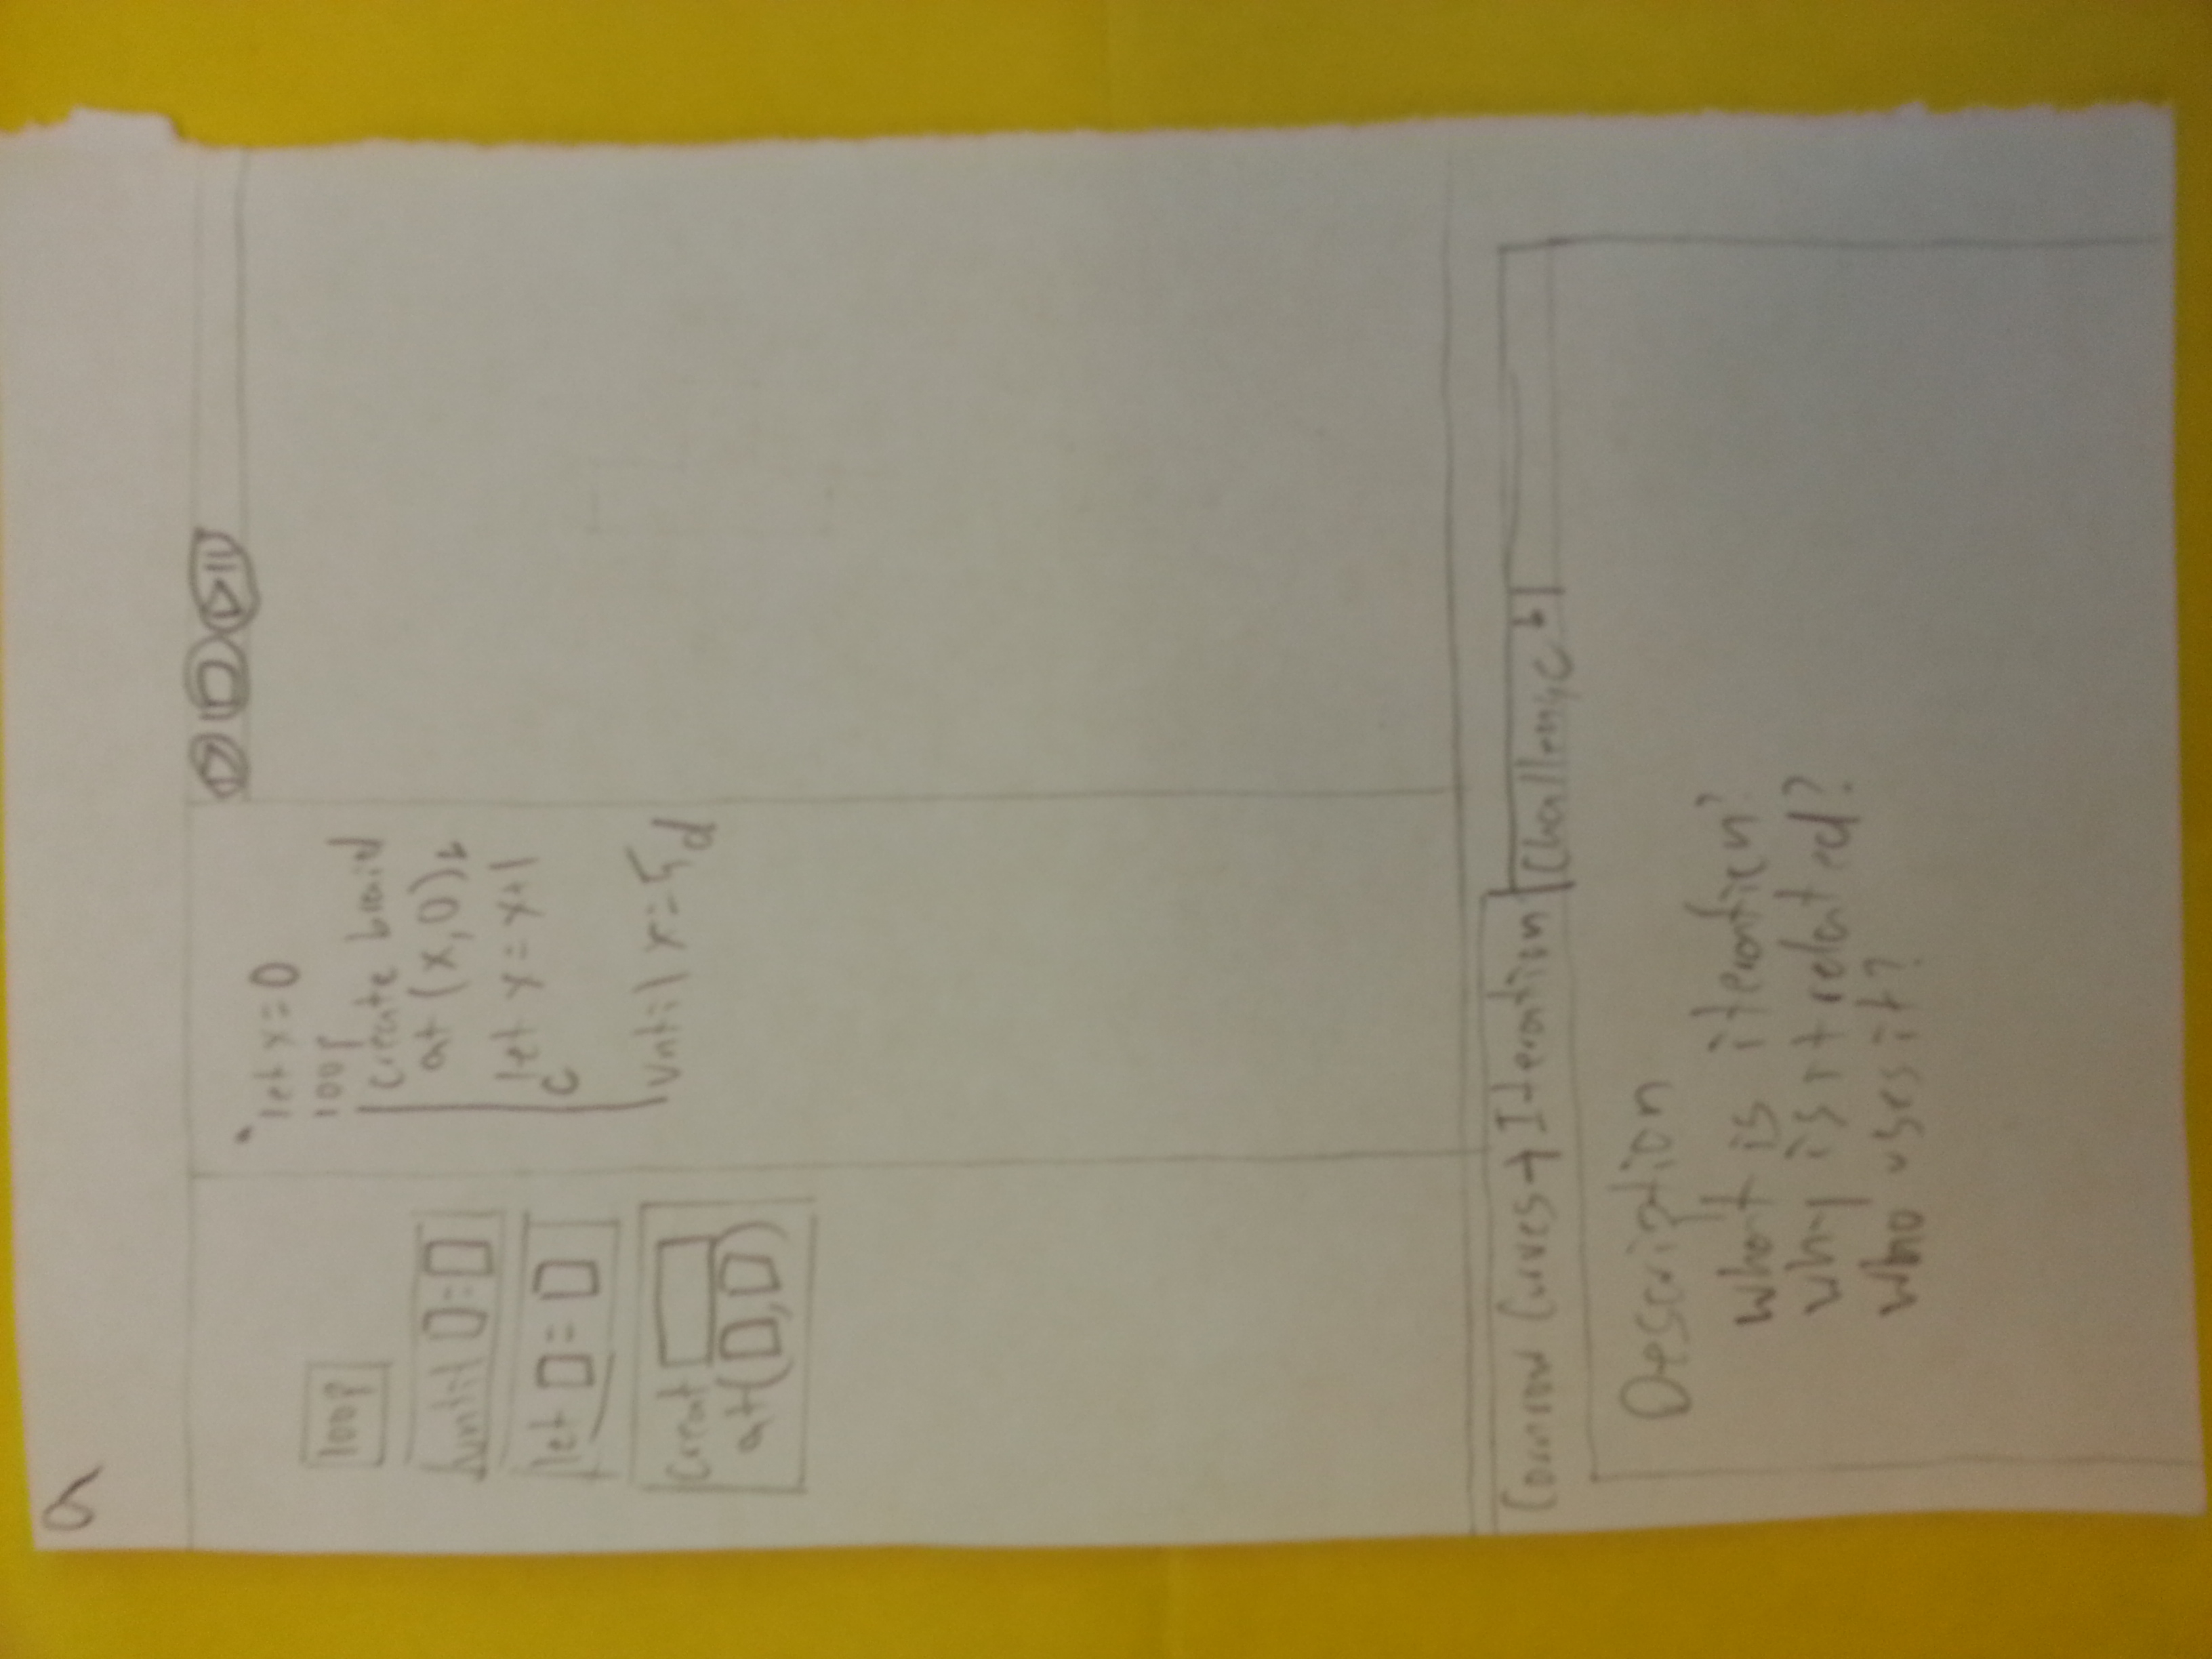 a
loop
until □=□
let □=□
creat
at(□,□)
a
let x=0
loop
create braid
at (x,0) b
let x=x+1
c
until x=5 d
Cornrow Curves → Iteration
Challenge b
Description
what is iteration?
why is it related?
who uses it?